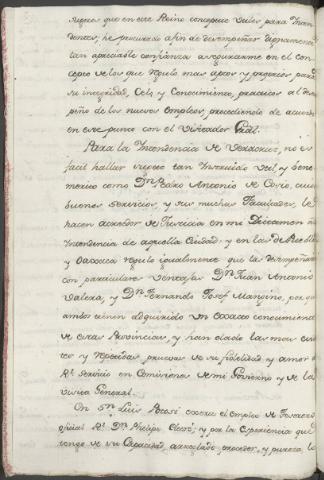 sugetos que en este Reino conceptue utiles para Inten
dentes, he procurado afin de desempeñar dignamente
tan apreciable confianza asegurarme en el con
cepto de los que regulo mas aptos y propios para
su integridad, Celo, y Conocimientos, practicos al desem
peño de los nuevos empleos, procediendo de acuerdo
en este punto con el Visitador Gral.
Para la Intendencia de Veracruz, no es
facil hallar sugeto tan Instruido util, y bene
merito como Dn. Pedro Antonio de Cosio, cuios
buenos servicios, y sus muchas Facultades, le
hacen acreedor de Justicia en mi Dictamen á la
Intendencia de aquella Ciudad; y en las de Puebla
y Oaxaca regulo igualmente que la desempeñarán
con particulares ventajas Dn. Juan Antonio
Valera, y Dn. Fernando Josef Mangino, por que
ambos tienen adquirido un exacto conocimiento
de estas Provincias, y han dado las mas
y repetidas pruevas de su fidelidad y amor al
Rl. servicio en Comisiones de mi Govierno y de la
Visita General.
En Sn. Luis Potosi exerce el empleo de Tesorero
oficial Rl. Dn. Phelipe Cleré; y por la experiencia que
tengo de su Capacidad, arreglado proceder, y pureza, le